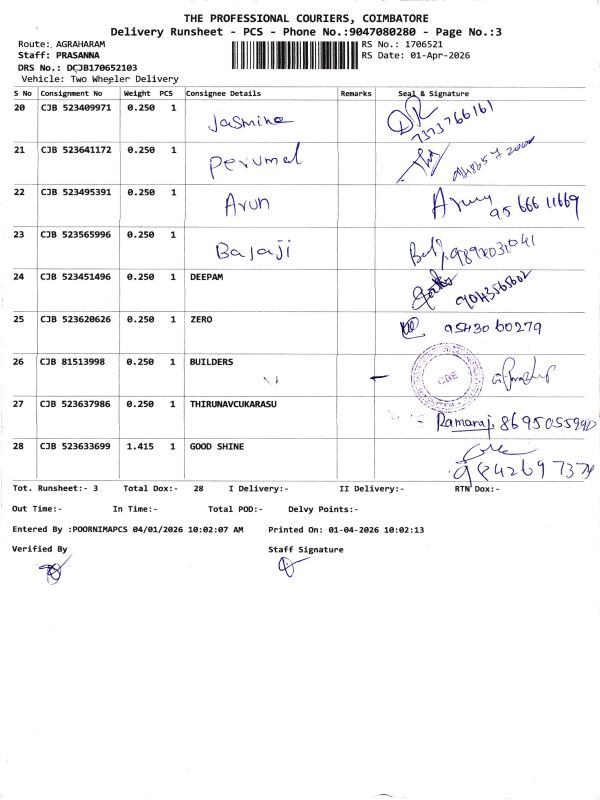 THE PROFESSIONAL COURIERS, COIMBATORE
Delivery Runsheet - PCS - Phone No.:9047080280 - Page No.:3
Route: AGRAHARAM RS No.: 1706521
Staff: PRASANNA RS Date: 01-Apr-2026
DRS No.: DCJB170652103
Vehicle: Two Wheeler Delivery
S No Consignment No Weight PCS Consignee Details Remarks Seal & Signature
20 CJB 523409971 0.250 1 Jasmine
7373766161
21 CJB 523641172 0.250 1 Perumal
22 CJB 523495391 0.250 1 Arun
95 666 11669
23 CJB 523565996 0.250 1 Balaji
24 CJB 523451496 0.250 1 DEEPAM
25 CJB 523620626 0.250 1 ZERO
9543060279
26 CJB 81513998 0.250 1 BUILDERS
CBE
27 CJB 523637986 0.250 1 THIRUNAVCUKARASU
Ramaraj
28 CJB 523633699 1.415 1 GOOD SHINE
Tot. Runsheet:- 3 Total Dox:- 28 I Delivery:- II Delivery:- RTN Dox:-
Out Time:- In Time:- Total POD:- Delvy Points:-
Entered By :POORNIMAPCS 04/01/2026 10:02:07 AM Printed On: 01-04-2026 10:02:13
Verified By Staff Signature